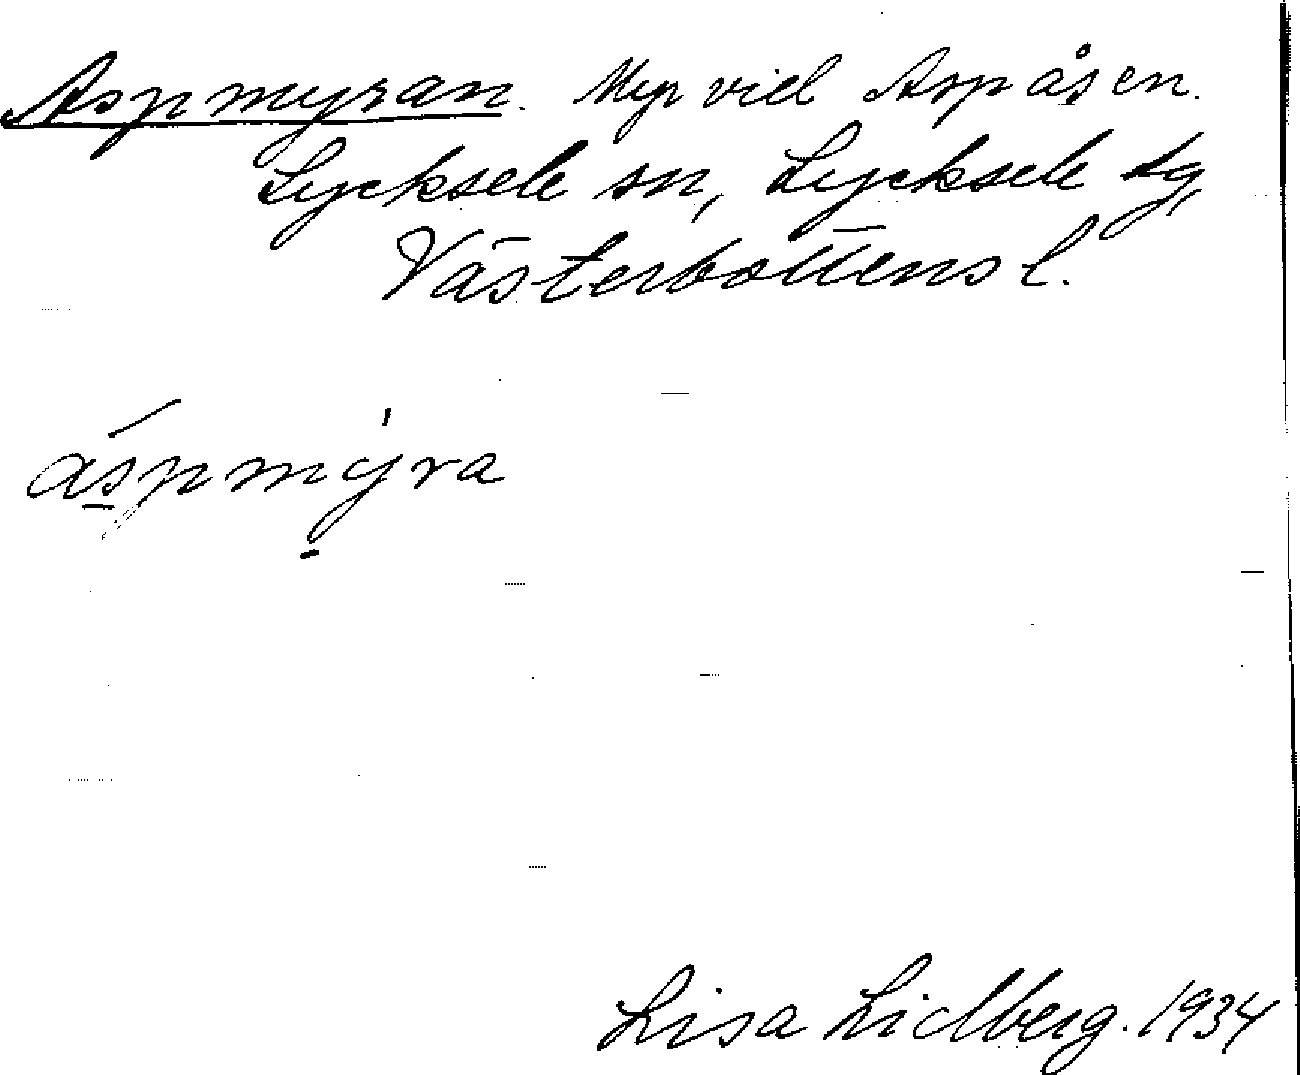 Aspmyran. Myr vid Aspåsen.
Lycksele sn, Lycksele tg,
Västerbottens l.
áspmýra
Lisa Lidberg. 1934